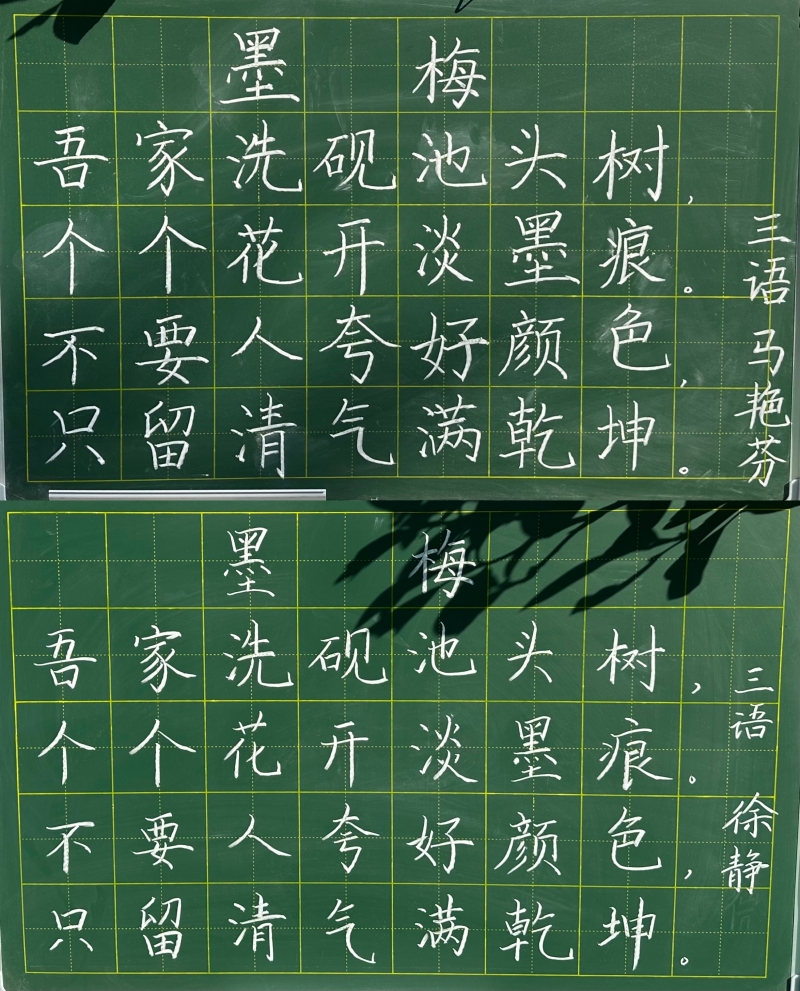 墨 梅
吾家洗砚池头树,
个个花开淡墨痕。
不要人夸好颜色,
只留清气满乾坤。
三语 马艳芬
墨 梅
吾家洗砚池头树,
个个花开淡墨痕。
不要人夸好颜色,
只留清气满乾坤。
三语 徐静